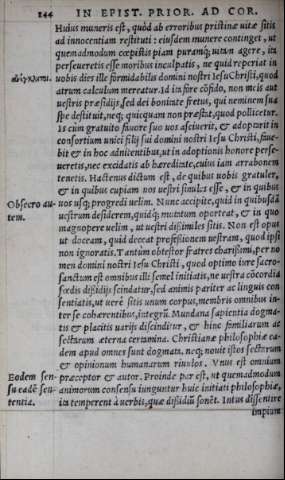 144 IN EPIST. PRIOR. AD COR.
Huius muneris est, quòd ab erroribus pristinæ uitæ sitis
ad innocentiam restituti: eiusdem munere continget, ut
quemadmodum cœpistis piam puramq; uitam agere, ita
perseueretis esse moribus inculpatis, ne quid reperiat in
uobis dies ille formidabilis domini nostri Iesu Christi, quod
atrum calculum mereatur. Id in fore cõfido, non meis aut
uestris præsidijs, sed dei bonitate fretus, qui neminem sua
spe destituit, neq; quicquam non præstat, quod pollicetur.
Is cum gratuito fauore suo uos asciuerit, & adoptarit in
consortium unici filij sui domini nostri Iesu Christi, faue-
bit & in hoc adnitentibus, ut in adoptionis honore perse-
ueretis, nec excidatis ab hæreditate, cuius iam arrabonem
tenetis. Hactenus dictum est, de quibus uobis gratuler,
& in quibus cupiam uos uestri similes esse, & in quibus
Obsecro au- uos usq; progredi uelim. Nunc accipite, quid in quibusdã
tem. uestrum desiderem, quidq; mutatum oporteat, & in quo
magnopere uelim, ut uestri dissimiles sitis. Non est opus
ut doceam, quid deceat professionem uestram, quod ipsi
non ignoratis. Tantum obtestor fratres charissimi, per no
men domini nostri Iesu Christi, quod optimo iure sacro-
sanctum est omnibus illi semel initiatis, ne uestra cõcordia
fœdis dissidijs scindatur, sed animis pariter ac linguis con
sentiatis, ut uerè sitis unum corpus, membris omnibus in-
ter se cohærentibus, integrũ. Mundana sapientia dogma-
tis & placitis uarijs discinditur, & hinc familiarum ac
sectarum æterna certamina. Christianæ philosophiæ ea-
dem apud omnes sunt dogmata, neq; nouit istos sectarum
& opinionum humanarum riuulos. Vnus est omnium
Eodem sen- præceptor & autor. Proinde par est, ut quemadmodum
su eadẽ sen- animorum consensu iunguntur huic initiati philosophiæ,
tentia. ita temperent à uerbis, quæ dissidiũ sonẽt. Intus dissentire
impium